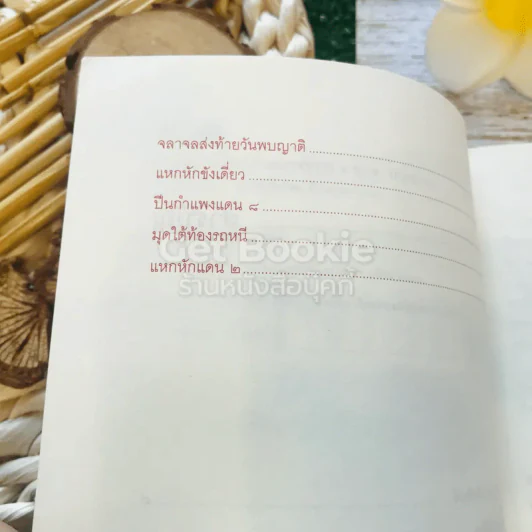 จลาจลส่งท้ายวันพบญาติ
แหกหักขังเดี่ยว
ปีนกำแพงแดน ๘
มุดใต้ท้องรถหนี
แหกหักแดน ๒
Get Bookie
ร้านหนังสือบุ๊คกี้